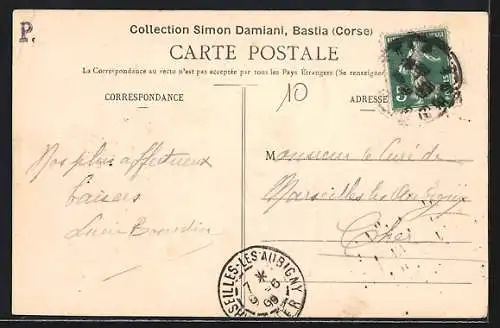 P.
Collection Simon Damiani, Bastia (Corse)
CARTE POSTALE
La Correspondance au recto n'est pas acceptée par tous les Pays Étrangers (Se renseigner
CORRESPONDANCE
10
ADRESSE
Nos plus affectueux
baisers
Lucie
Monsieur le Curé de
Marseilles les Aubigny
Cher
MARSEILLES-LES-AUBIGNY
CHER